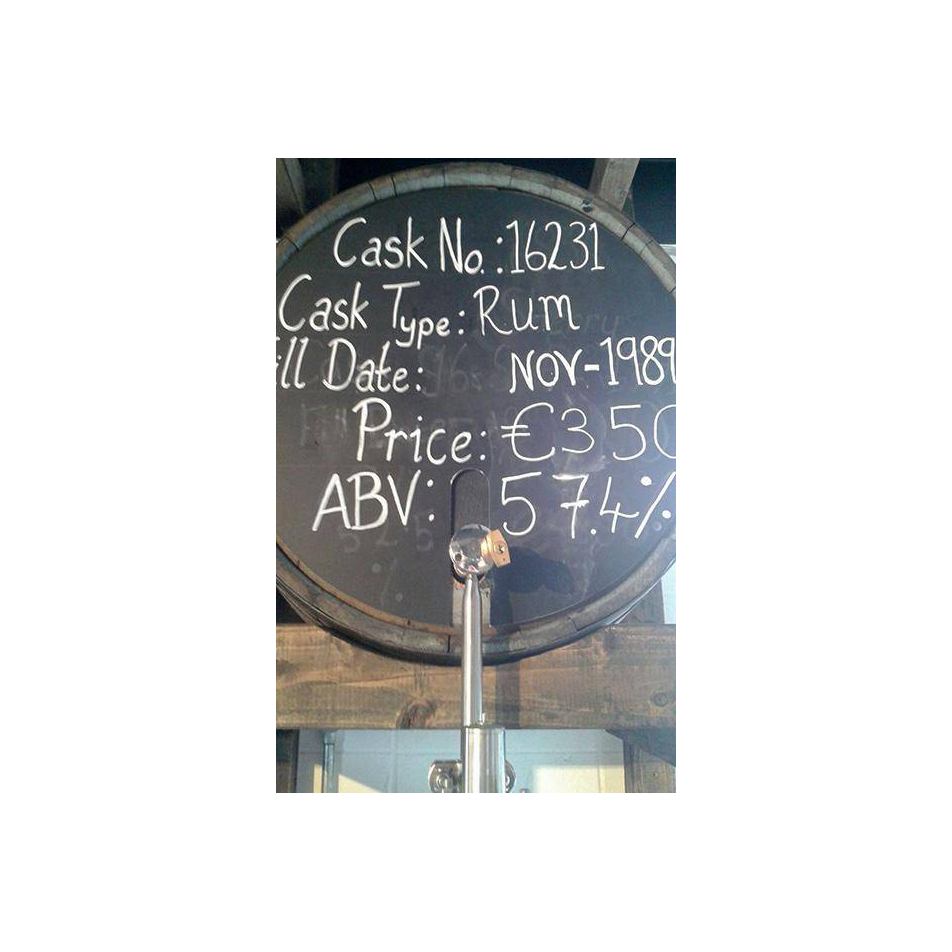 Cask No.: 16231
Cask Type: Rum
ill Date: NOV-1989
Price: €350
ABV: 57.4%